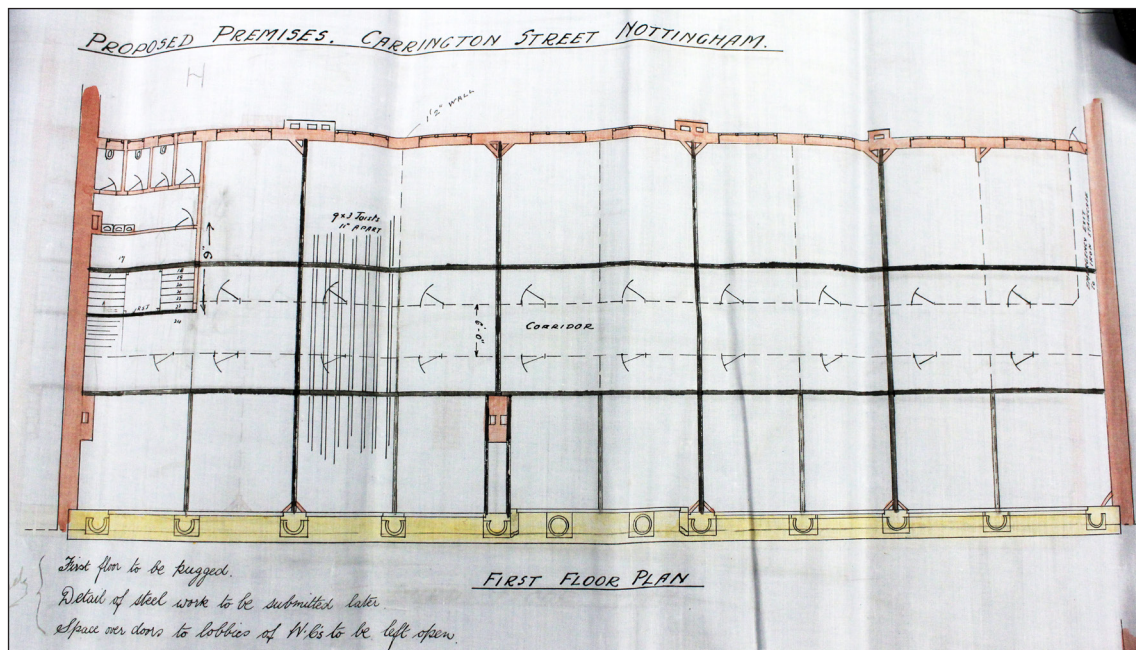 PROPOSED PREMISES. CARRINGTON STREET NOTTINGHAM.
H
1½" WALL
9x3 Joists
11" APART
17
18
19
20
21
22
23
24
1
6"
CORRIDOR
6'-0"
EMERGENCY EXIT
First floor to be pugged.
FIRST FLOOR PLAN
Detail of steel work to be submitted later.
Space over doors to lobbies of W.C's to be left open.